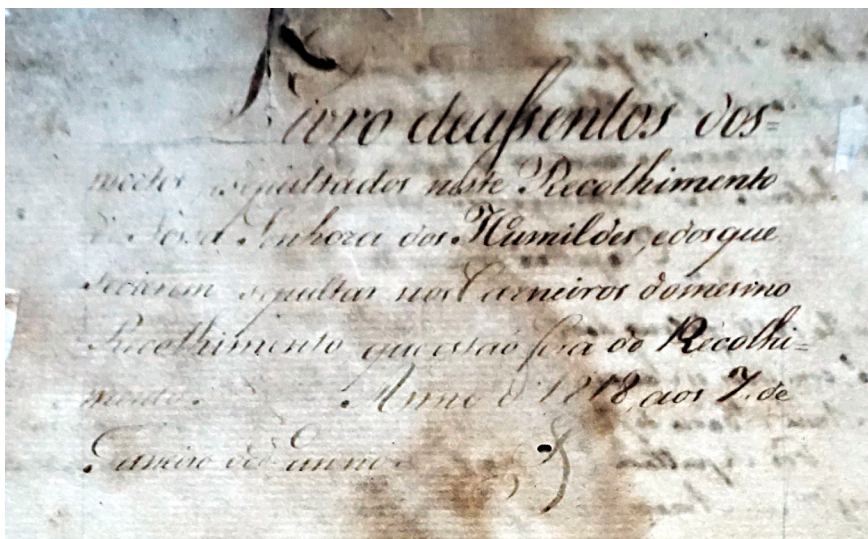 Livro deassentos dos=
mortos sepultados neste Recolhimento
de Nossa Senhora dos Humildes, edosque
sepultar nos Carneiros domesmo
Recolhimento que estaõ fora do Recolhi=
mento. Anno d 1818, aos 7. de
Janeiro